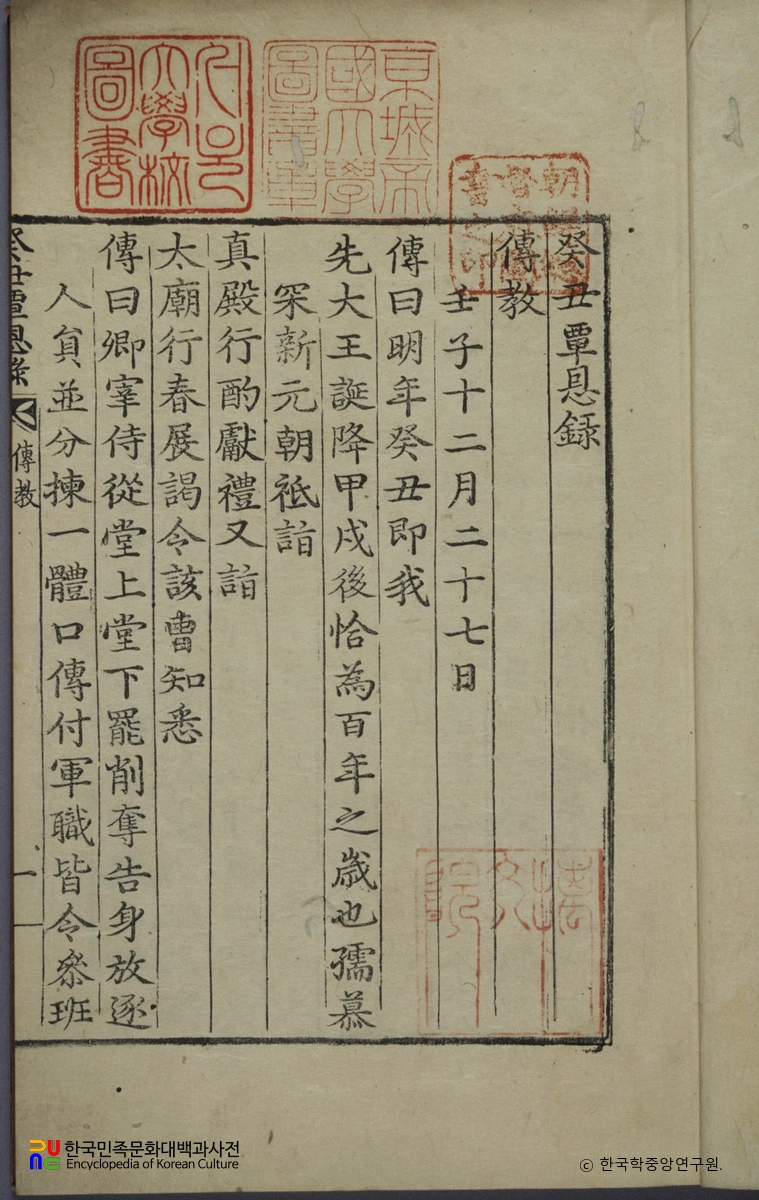 癸丑覃恩録
傳教
壬子十二月二十七日
傳曰明年癸丑即我
先大王誕降甲戌後恰為百年之歲也孺慕
冞新元朝祗詣
真殿行酌獻禮又詣
太廟行春展謁令該曹知悉
傳曰卿宰侍從堂上堂下罷削奪告身放逐
人貟並分揀一體口傳付軍職皆令叅班
癸丑覃恩錄
傳教
一
京城帝
國大學
圖書章
大學校
圖書
한국민족문화대백과사전
Encyclopedia of Korean Culture
© 한국학중앙연구원.